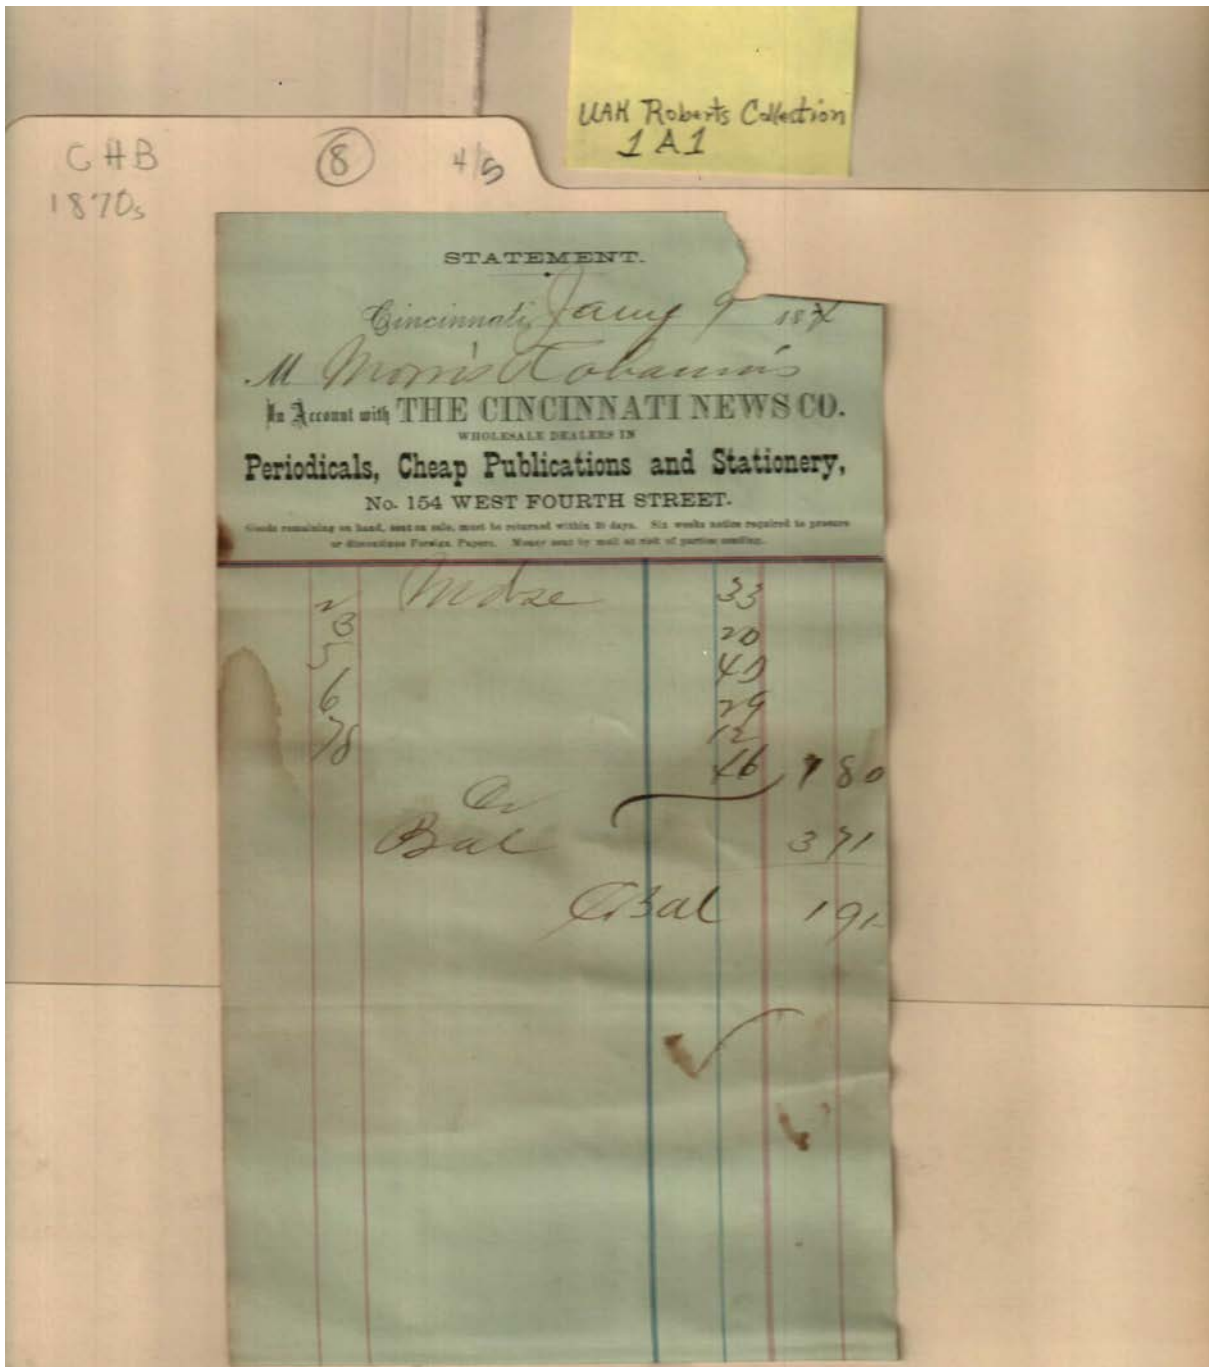 UAH Roberts Collection
1 A 1
CHB 8 4/5
1870s
STATEMENT.
Cincinnati, Jany 9 187
M Morris
In Account with THE CINCINNATI NEWS CO.
WHOLESALE DEALERS IN
Periodicals, Cheap Publications and Stationery,
No. 154 WEST FOURTH STREET.
Goods remaining on hand, sent on sale, must be returned within 30 days. Six weeks notice required to procure
or discontinue Foreign Papers. Money sent by mail at risk of parties sending.
2 Mdse 33
3 20
5 40
6 29
7 12
8 46 1 80
Cr
Bal 3 71
Cr Bal 1 91